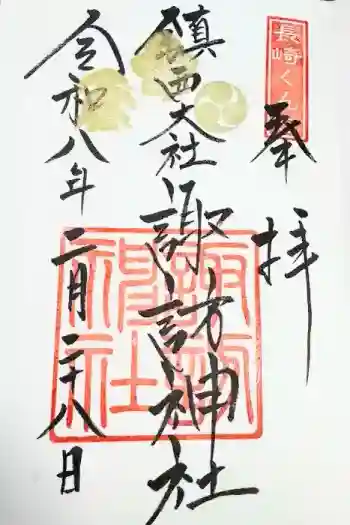 長崎くんち
奉拝
鎮西大社
諏訪神社
令和八年二月二十八日
諏訪神社